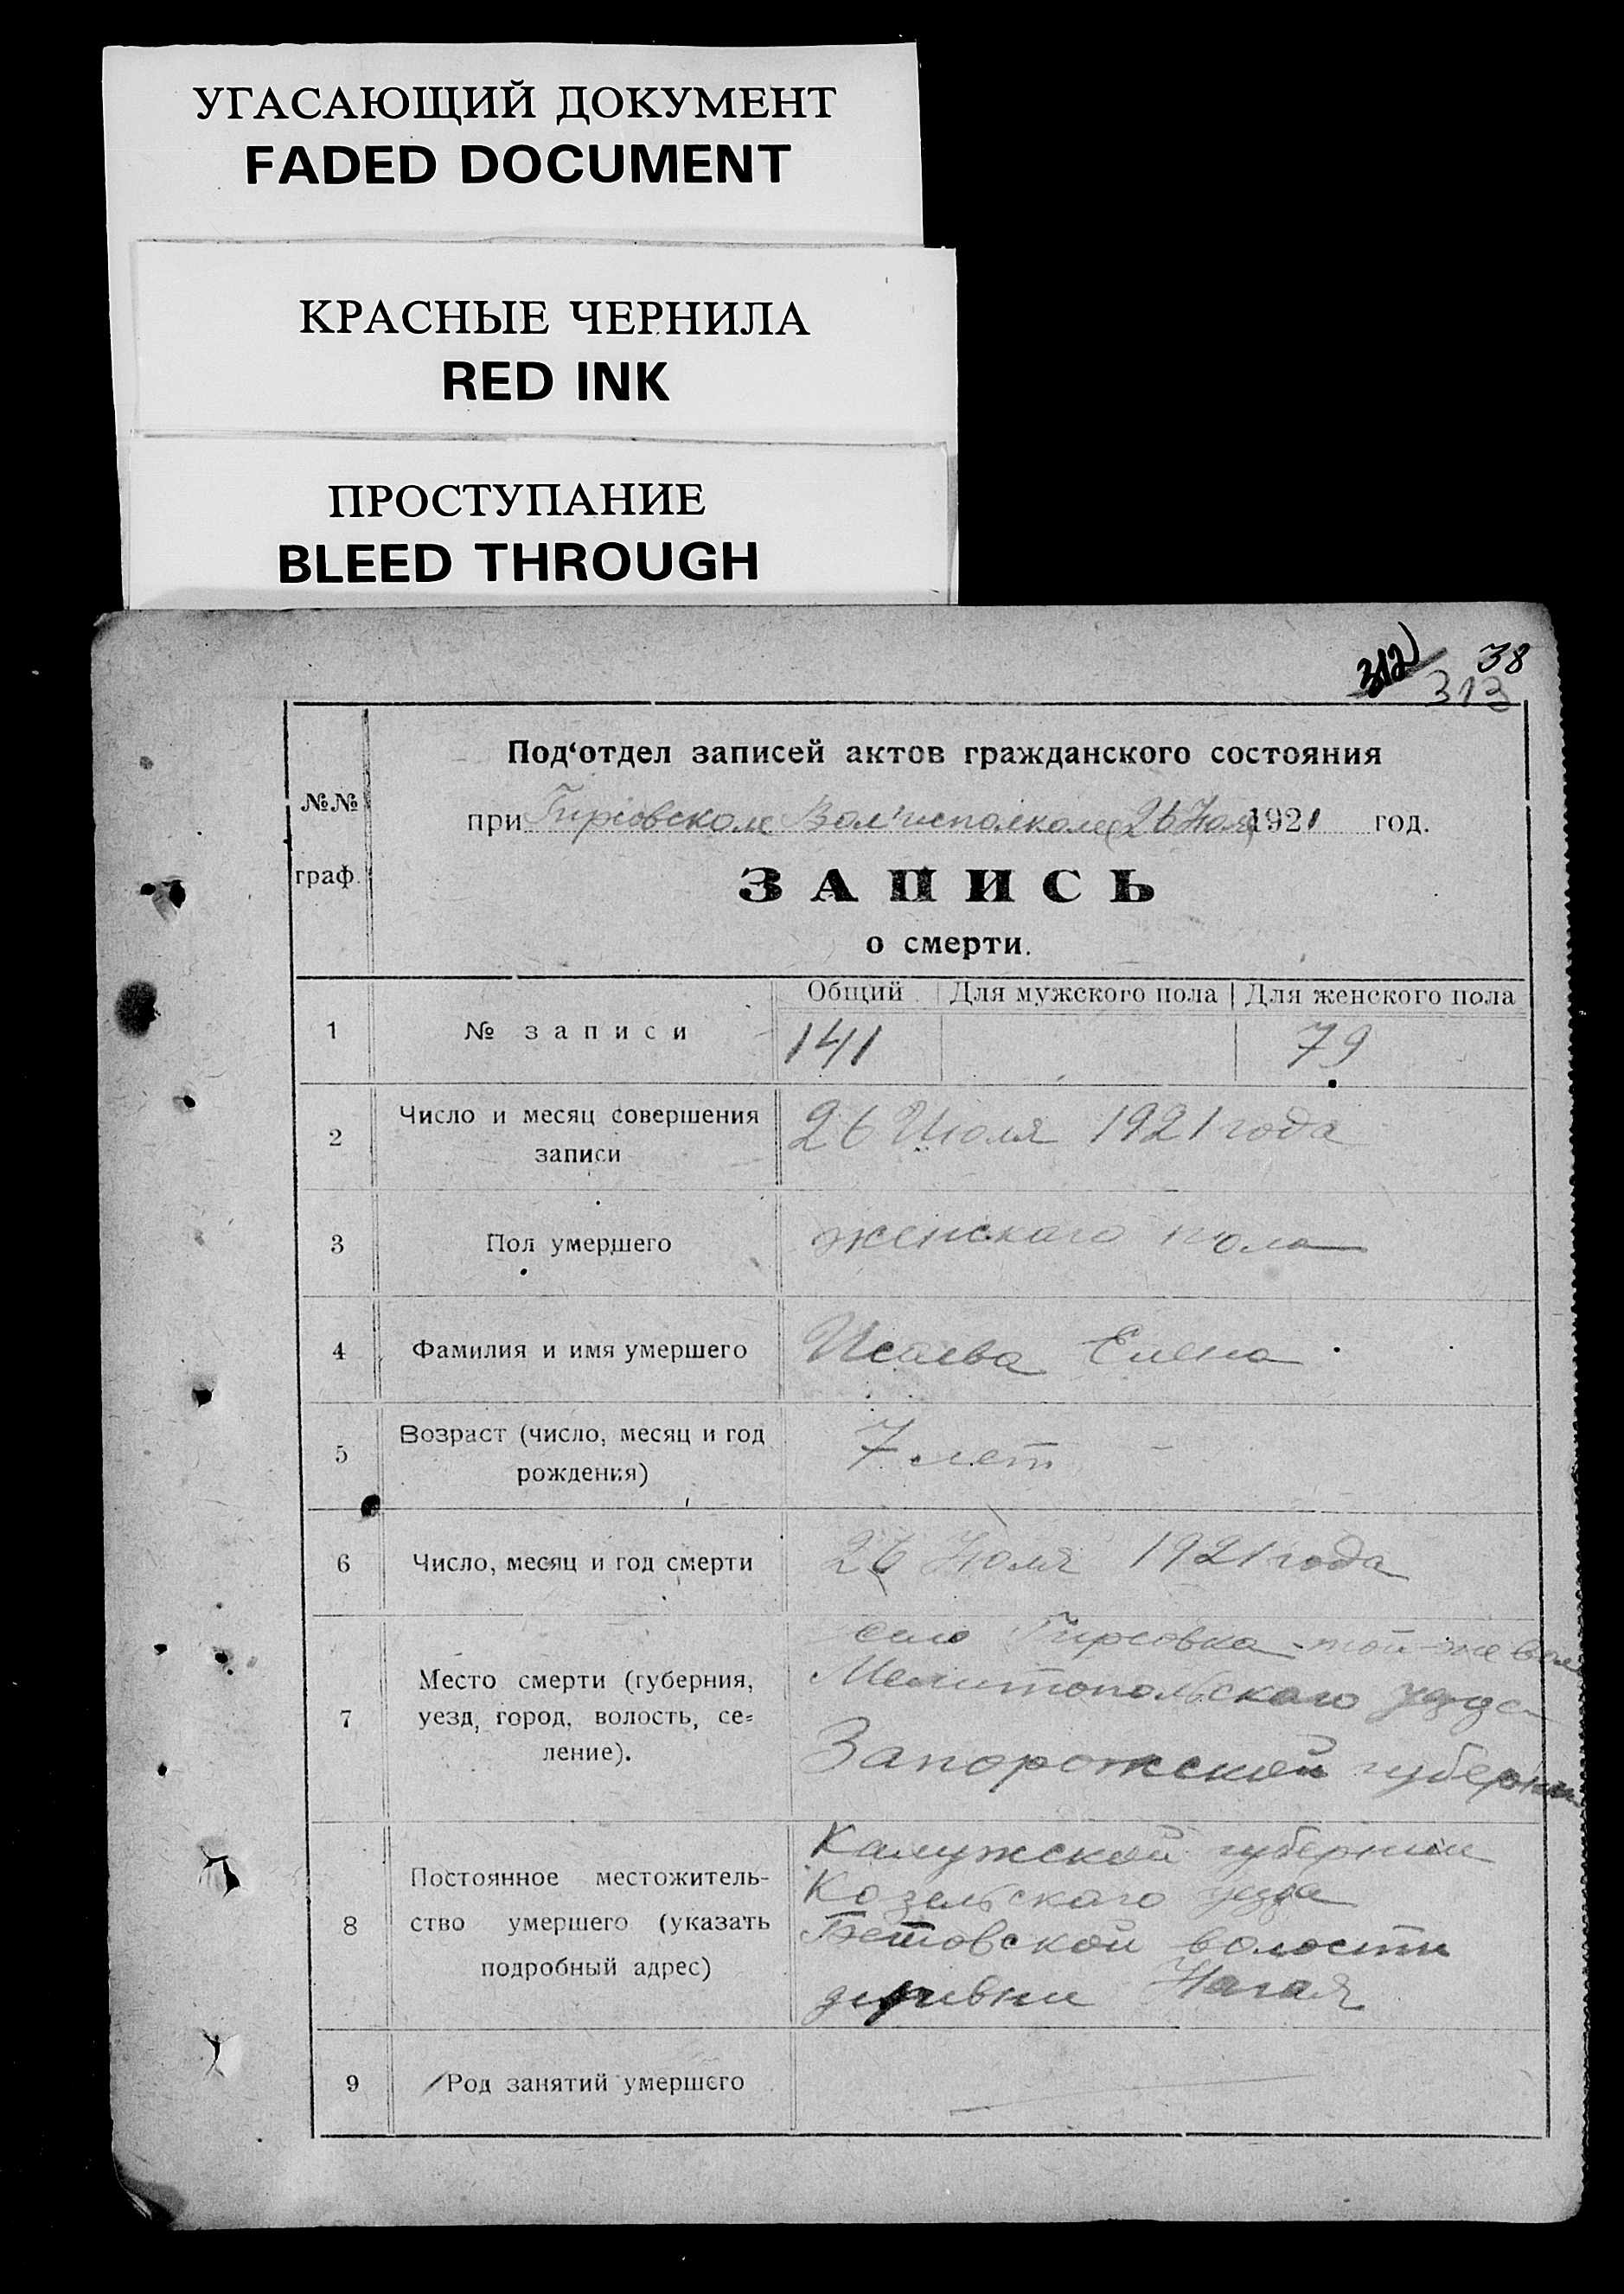 УГАСАЮЩИЙ ДОКУМЕНТ
FADED DOCUMENT
КРАСНЫЕ ЧЕРНИЛА
RED INK
ПРОСТУПАНИЕ
BLEED THROUGH
312 38
313
№№ граф.
Под‘отдел записей актов гражданского состояния
при Гирсовском Вол'исполкоме (26 Июля) 1921 год.
ЗАПИСЬ
о смерти.
Общий Для мужского пола Для женского пола
1 № записи 141 79
2 Число и месяц совершения
записи
26 Июля 1921 года
3 Пол умершего женскаго пола
4 Фамилия и имя умершего Исаева Елена
5 Возраст (число, месяц и год
рождения)
7 лет
6 Число, месяц и год смерти 26 Июля 1921 года
7 Место смерти (губерния,
уезд, город, волость, се=
ление).
село Гирсовка той-же вол
Мелитопольскаго уезда
Запорожской губернии
8 Постоянное местожитель-
ство умершего (указать
подробный адрес)
Калужской губернии
Козельскаго уезда
волости
деревни Нагая
9 Род занятий умершего